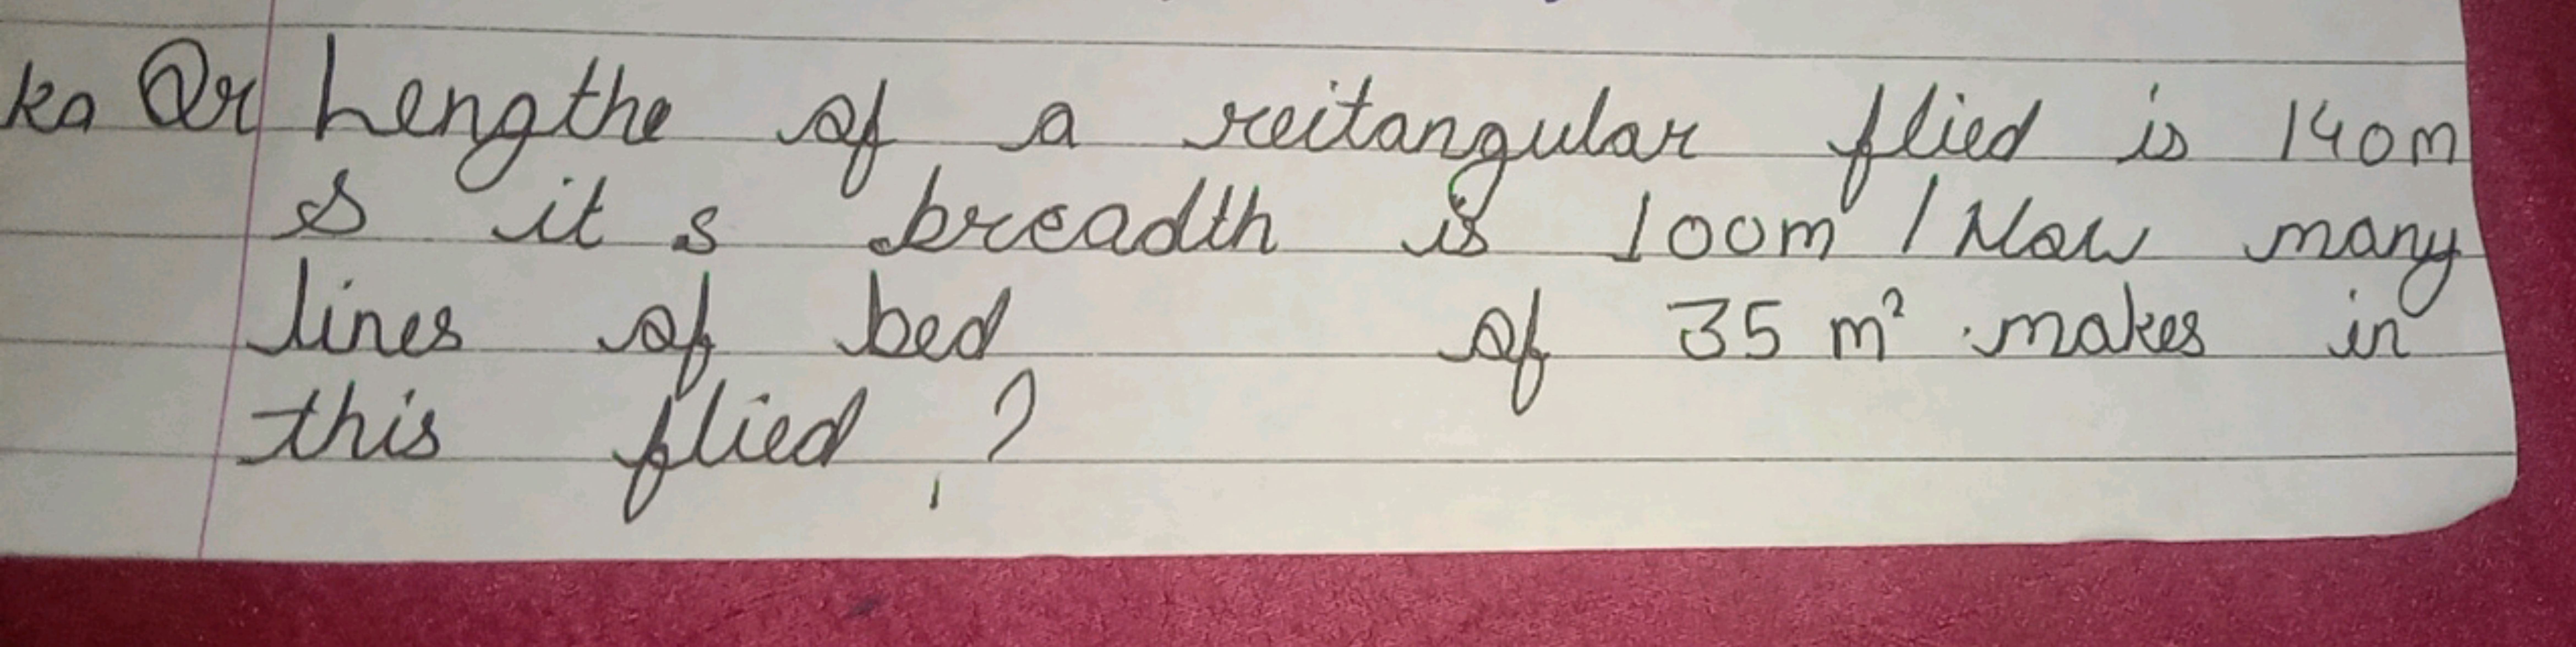 ka Or Lengthe of a reitangular flied is 140m
& it s breadth is 100m / How many
lines of bed of 35 m² makes in
this flied ?